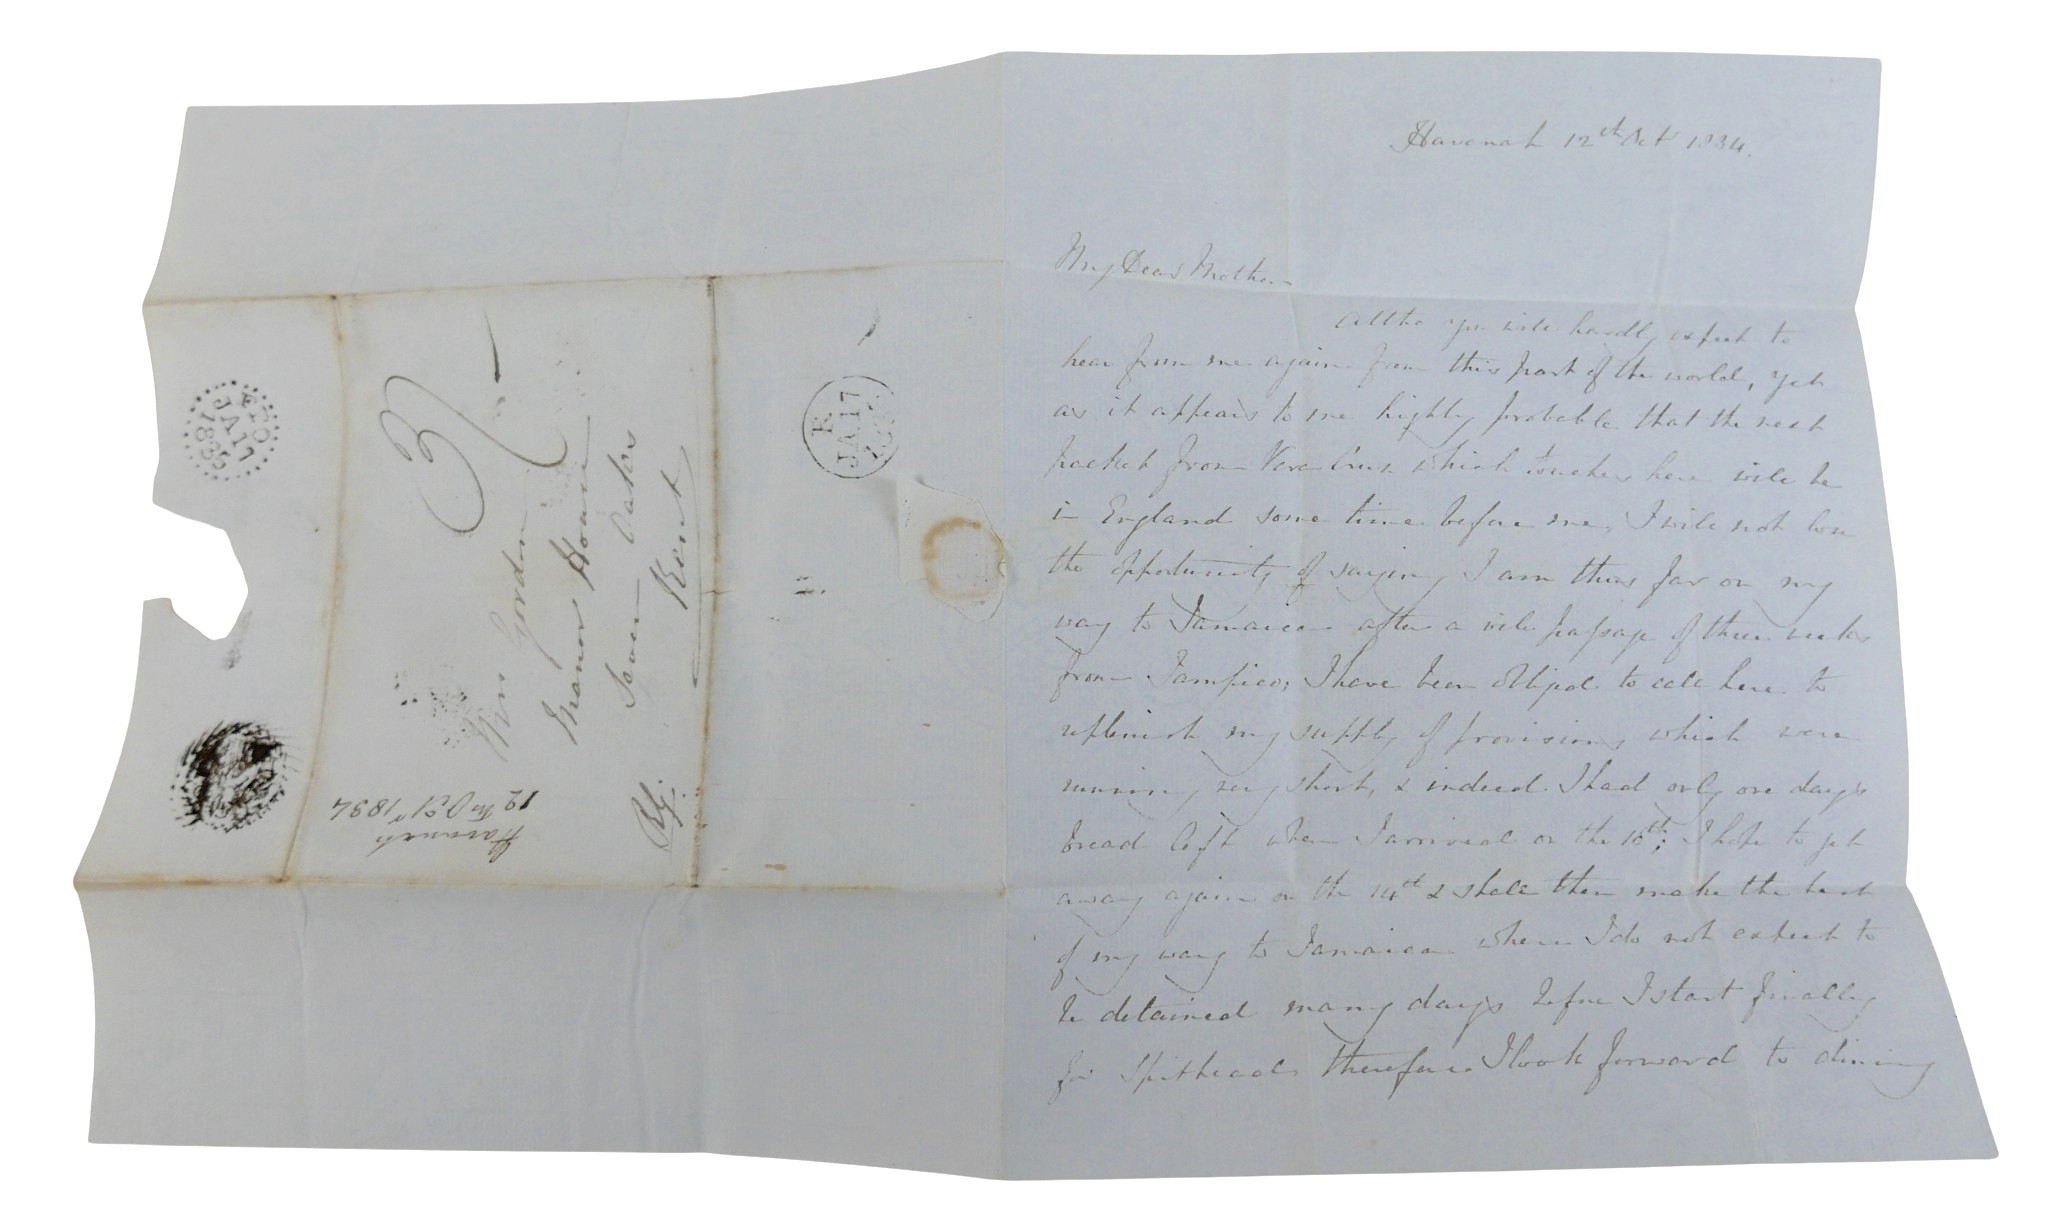 Havanah 12th Oct 1834.
My Dear Mother
Altho you will hardly expect to
hear from me again from this part of the world, yet
as it appears to me highly probable that the next
packet from Vera Cruz which touches here will be
in England some time before me, I will not lose
the opportunity of saying I am thus far on my
way to Jamaica after a vile passage of three weeks
from Tampico, I have been obliged to call here to
replenish my supply of provisions which were
running very short, & indeed I had only one days
bread left when I arrived on the 10th; I hope to get
away again on the 14th & shall then make the best
of my way to Jamaica where I do not expect to
be detained many days before I start finally
for Spithead therefore I look forward to dining
Mrs Gordon
Manor House
Seven Oaks
Kent
3/-
Havanah
12th Octr 1834
JA 17
1835
F
JA 17